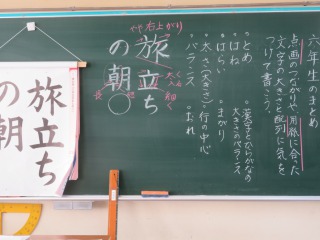 六年生のまとめ
点画のつながりや用紙に合った
文字の大きさと配列に気を
つけて書こう。
・とめ
・はね
・はらい
・太さ(大きさ)
・バランス
・漢字とひらがなの
大きさのバランス
・まがり
・行の中心
・おれ
やや右上がり
旅立ち
の朝
旅立ち
の朝